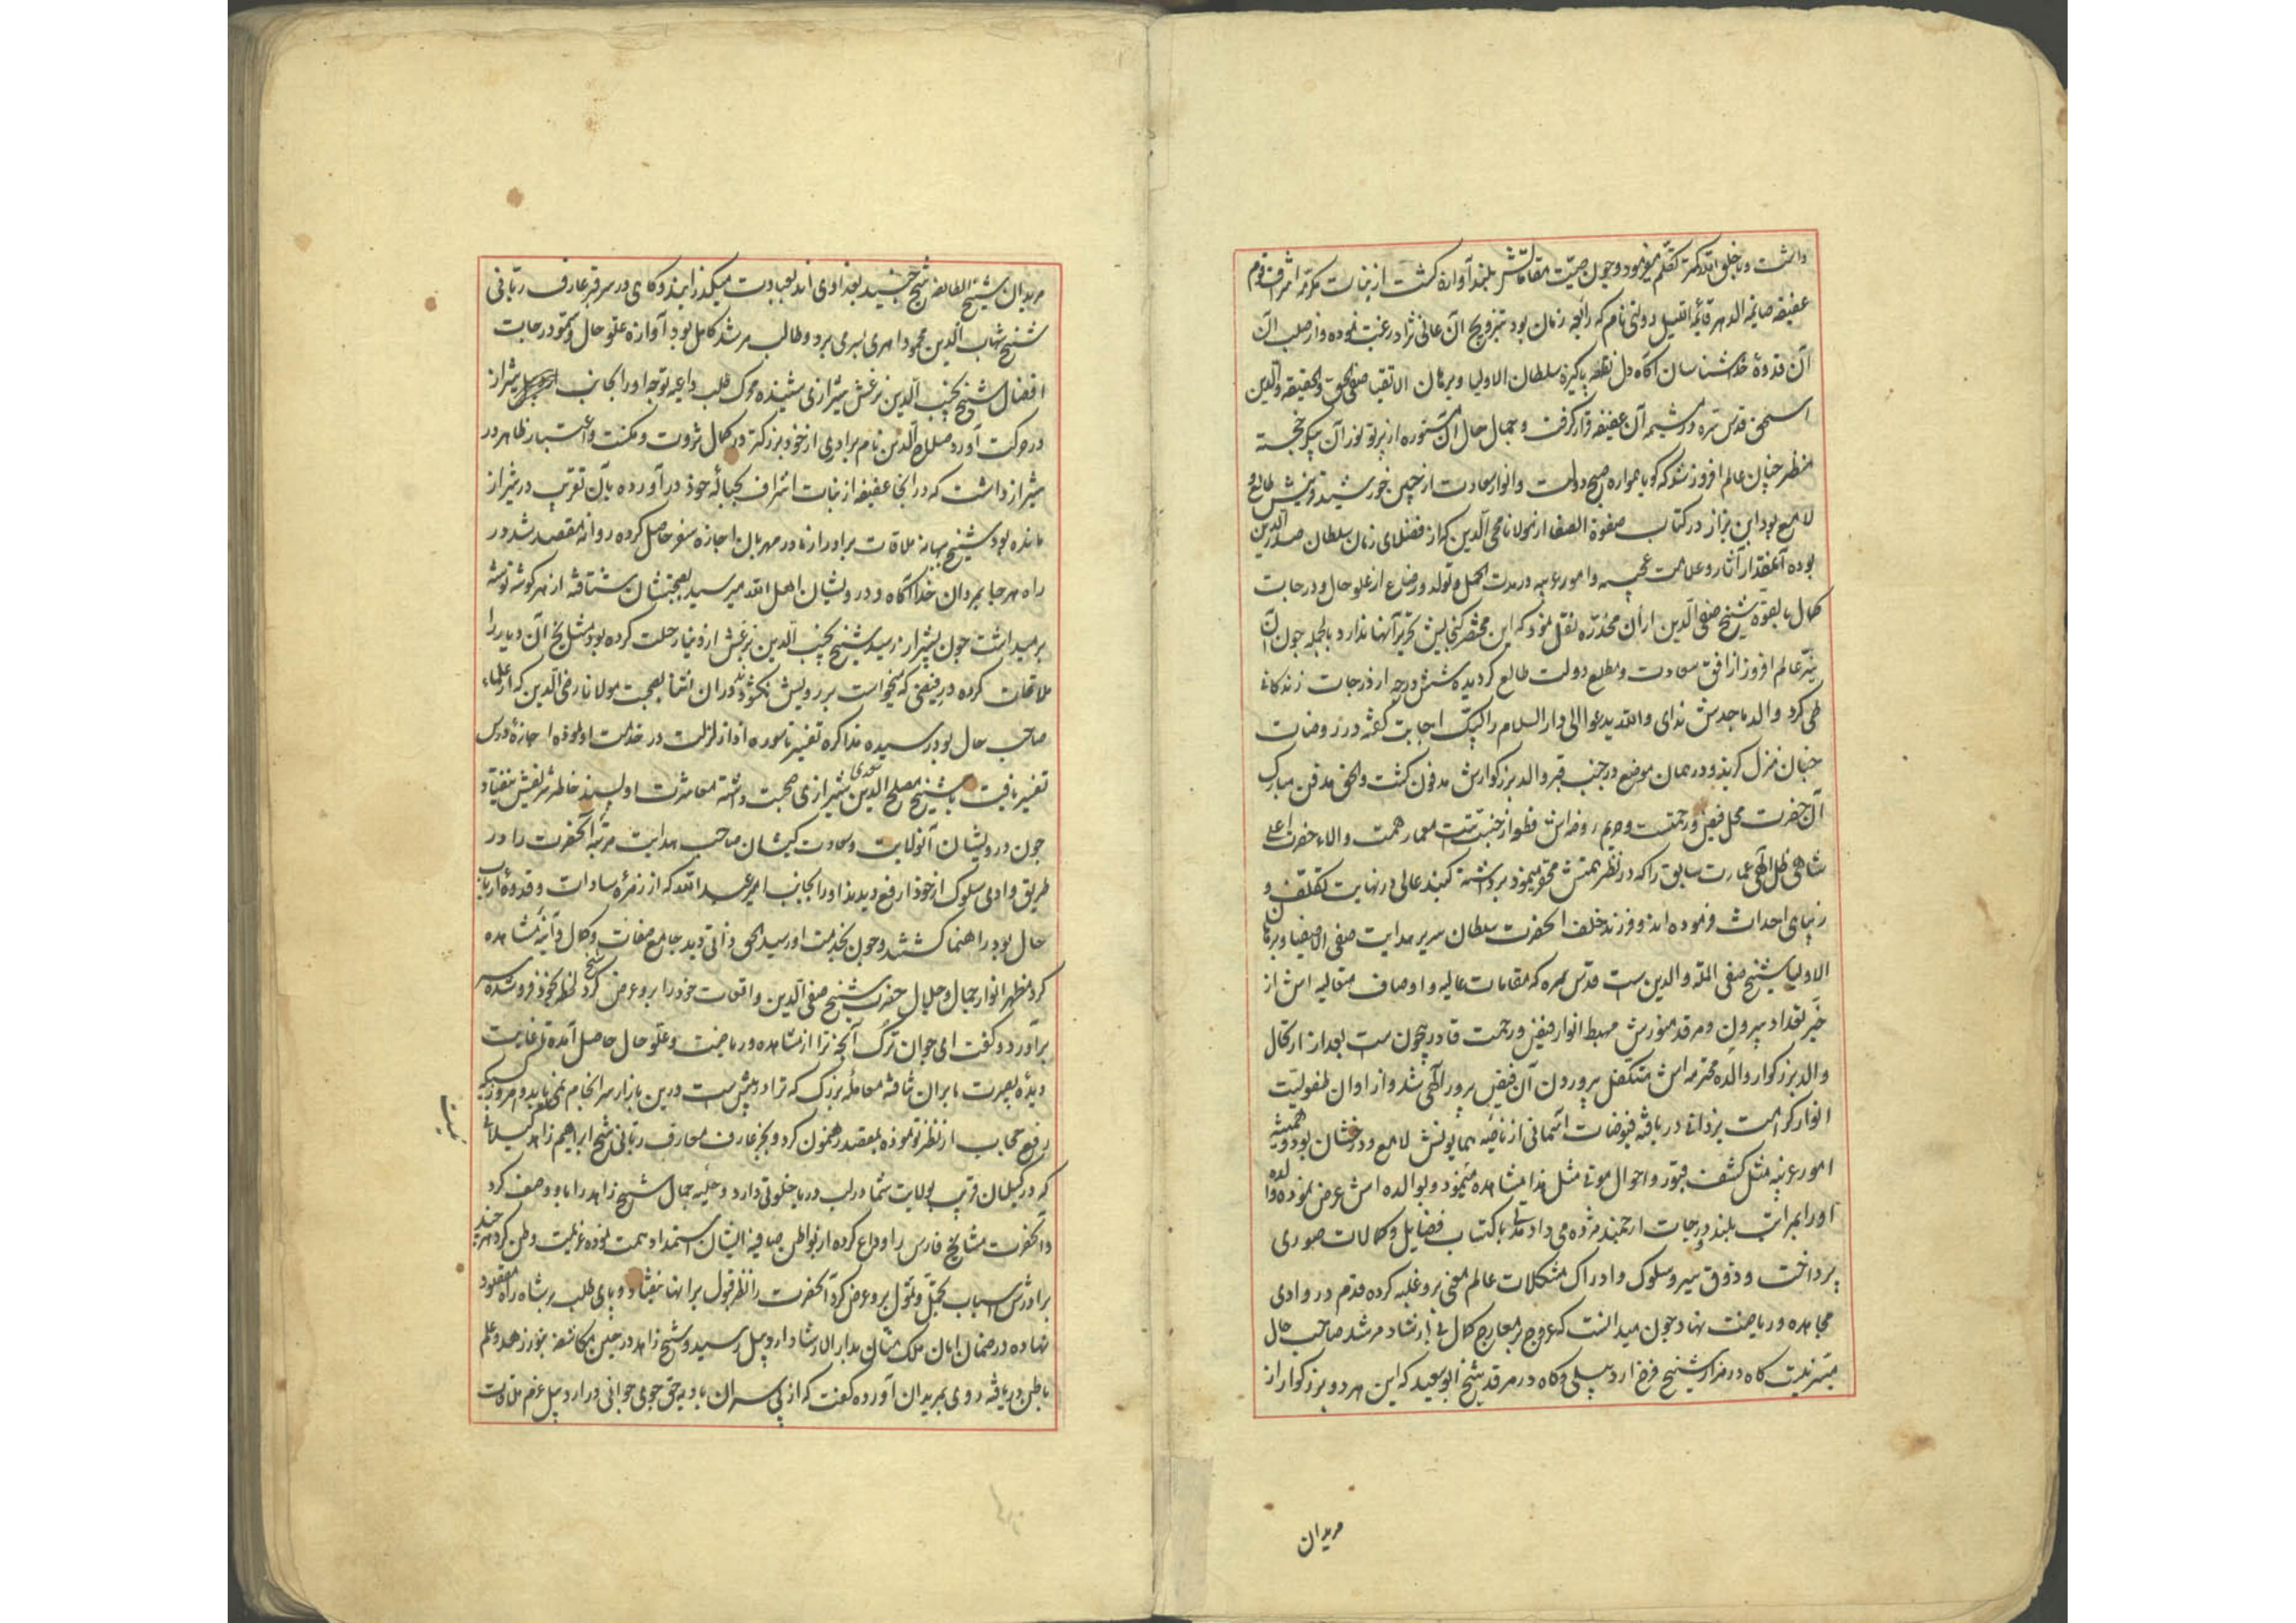 داشت و با خلق الله کمتر تکلم میفرمود و چون صیت مقاماتش بلند آوازه کشت از بنات مکرمه اشراف قوم
عفیفه صایمة الدهر قائمة اللیل دولتی نام که رابعه زمان بود بتزویج آن عالی نژاد رغبت نموده و از صلب آن
آن قدوهٔ خدا شناسان آکاه دل نطفه پاکیزه سلطان الاولیا و برهان الاتقیا صفی الحق والحقیقه والدین
اسحق قدس سره در مشیمه آن عفیفه قرار کرفت و جمال حال آن مستوره از پرتو نور آن پیکر خجسته
منظر چنان عالم افروز شد که کویا همواره صبح دولت و انوار سعادت از جبین خورشید وشش طالع و
لامع بود ابن بزاز در کتاب صفوة الصفا از مولانا محی الدین که از فضلای زمان سلطان صدر الدین
بوده آنقدر آثار و علامت عجیبه و امور غریبه در مدت حمل و تولد و رضاع از علو حال و درجات
کمال بالقوه شیخ صفی الدین از آن مخدره نقل نمود که این مختصر کنجایش تحریر آنها ندارد بالجمله چون آن
نیر عالم افروز از افق سعادت و مطلع دولت طالع کردیده شش درجه از درجات زندکانی
طی کرد والد ماجدش ندای والله یدعوا الی دار السلام را لبیک اجابت کفته در روضات
جنان منزل کزید و در همان موضع در جنب قبر والد بزرکوارش مدفون کشت والحق مدفن مبارک
آن حضرت محل فیض و رحمت و حریم روضه اش فظواز جنبت معمار همت والاء حضرت اعلی
شاهی ظل اللهی عمارت سابق را که در نظر همتش محقر مینمود برداشته کنبد عالی در نهایت تکلف و
زیبای احداث فرموده اند و فرزند خلف آنحضرت سلطان سریر هدایت صفی الاصفیا و برهان
الاولیا شیخ صفی المله والدین ست قدس سره که مقامات عالیه و اوصاف متعالیه اش از
حیز تعداد بیرون و مرقد منورش مهبط انوار فیض و رحمت قادر بیچون ست بعد از ارتحال
والد بزرکوار والده محترمه اش متکفل پروردن آن فیض پرور الهی شد و از اوان طفولیت
انوار کرامت یزدانی دریافته فیوضات آسمانی از ناصیه همایونش لامع و درخشان بود و همیشه
امور غریبه مثل کشف قبور و احوال موتی مثل هذا مشاهده مینمود و بوالده اش عرض نموده والده
او را بمراتب بلند و درجات ارجمند مژده می داد مدتی باکتساب فضایل و کمالات صوری
پرداخت و ذوق سیر و سلوک و ادراک مشکلات عالم معنی برو غلبه کرده قدم در وادی
مجاهده و ریاضت نهاد و چون میدانست که عروج بر معارج کمال بی ارشاد مرشد صاحب حال
میسر نیست کاه در مزار شیخ فرخ اردبیلی و کاه در مرقد شیخ ابو سعید که این هر دو بزرکوار از
مریدان
مریدان شیخ الطائفه شیخ جنید بغدادی اند بعبادت میکذرانید و کاهی در سر قبر عارف ربانی
شیخ شهاب الدین محمود اهری بسری برد و طالب مرشد کامل بود آوازه علو حال و سمو درجات
افضال شیخ نجیب الدین بزغش شیرازی شنیده محرک طلب داعیه توجه او را بجانب شیراز
در حرکت آورد صلاح الدین نام برادری از خود بزرکتر در کمال ثروت و مکنت و اعتبار ظاهر در
شیراز داشت که در آنجا عفیفه از بنات اشراف بحباله خود در آورده بآن تقریب در شیراز
مانده بود شیخ بهانه ملاقات برادر از مادر مهربان اجازه سفر حاصل کرده روانه مقصد شد در
راه هر جا بمردان خدا آکاه و درویشان اهل الله میرسید بصحبتشان شتافته از هر کوشه توشه
برمیداشت چون بشیراز رسید شیخ نجیب الدین بزغش از دنیا رحلت کرده بود مشایخ آن دیار را
ملاقات کرده در فیضی که میخواست بر رویش نکشودند در آن اثنا بصحبت مولانا رضی الدین که از علماء
صاحب حال بود رسیده مذاکره تفسیر تا سوره اذا زلزلت در خدمت او نموده اجازهٔ درس
تفسیر یافت با شیخ مصلح الدین سعدی شیرازی صحبت داشته معاشرت او پسند خاطر شریفش نیفتاد و
چون درویشان آنولایت و سعادت کیشان صاحب هدایت مرتبه آنحضرت را در
طریق وادی سلوک از خود ارفع دیدند او را بجانب امیر عبد الله که از زمرهٔ سادات و قدوهٔ ارباب
حال بود راهنما کشتند و چون بخدمت او رسید الحق ذاتی دید جامع صفات و کمال و آینه مشاهده
کرد مظهر انوار جمال و جلال حضرت شیخ صفی الدین واقعات خود را برو عرض کرد شیخ لحظه بخود فرو شده سر
برآورد و کفت ای جوان ترک آنچه ترا از مشاهده و ریاضت و علو حال حاصل آمده تا غایت
دیدهٔ بصیرت ما بر آن نتافته معامله بزرک که ترا در پیش ست درین بازار سر انجام نمی یابد و امروز کسیکه
رفع حجاب از نظر تو نموده بمقصد رهنمون کردد بجز عارف معارف ربانی شیخ ابراهیم زاهد کیلانی
نیست
که در کیلان قریب بولایت شما در لب دریا خلوتی دارد و حلیه جمال شیخ زاهد را باو وصف کرد
و آنحضرت مشایخ فارس را وداع کرده از بواطن صافیه ایشان استمداد همت نموده عزیمت وطن کرد هر چند
برادرش اسباب تجمل و تمول برو عرض کرد آنحضرت را نظر قبول بر آنها نیفتاد و پای طلب بر شاه راه مقصود
نهاده در ضمان امان ملک منان بدار الارشاد اردبیل رسید و شیخ زاهد در حین مکاشفه بنور زهد و علم
باطن دریافته روی بمریدان آورده کفت که از پی سران بادیه حق جوی جوانی در اردبیل عزم ملاقات